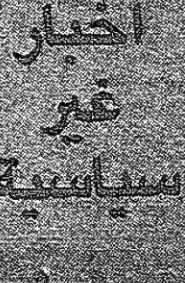 اخبار
غير
سياسية